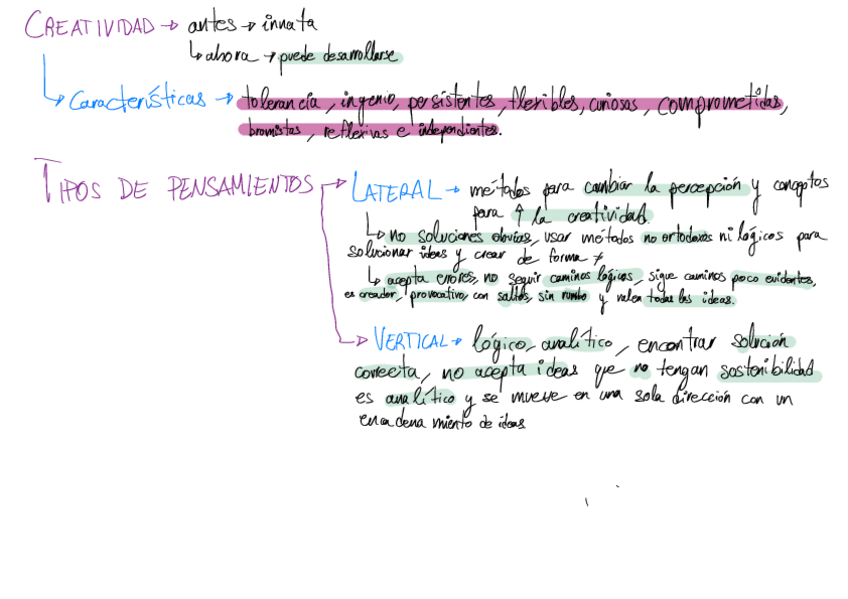 CREATIVIDAD → antes → innata
↳ ahora → puede desarrollarse
↳ Características → tolerancia, ingenio, persistentes, flexibles, curiosas, comprometidas,
bromistas, reflexivas e independientes.
TIPOS DE PENSAMIENTOS → LATERAL → métodos para cambiar la percepción y conceptos
para ↑ la creatividad.
↳ no soluciones obvias, usar métodos no ortodoxos ni lógicos para
solucionar ideas y crear de forma ≠
↳ acepta errores, no seguir caminos lógicos, sigue caminos poco evidentes,
es creador, provocativo, con saltos, sin rumbo y valen todas las ideas.
→ VERTICAL → lógico, analítico, encontrar solución
correcta, no acepta ideas que no tengan sostenibilidad
es analítico y se mueve en una sola dirección con un
encadenamiento de ideas